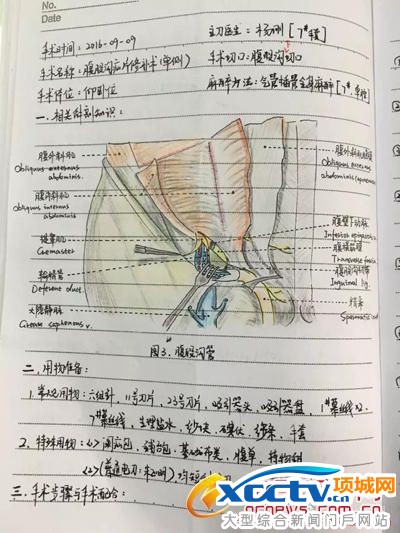 No.
Date
手术时间：2016-09-09
主刀医生：杨刚[7#手套]
手术名称：腹股沟疝片修补术(单侧)
手术切口：腹股沟切口
手术体位：仰卧位
麻醉方法：气管插管全身麻醉
一、相关解剖知识：
腹外斜肌
Obliquus externus
abdominis.
腹内斜肌
Obliquus internus
abdominis.
提睾肌
Cremaster
输精管
Deferent duct.
大隐静脉
Great saphenous v.
腹外斜肌腱膜
Obliquus externus
abdominis (aponeurosis)
腹壁下动脉
Inferior epigastric a.
腹横筋膜
Transverse fascia
腹股沟韧带
Inguinal lig.
精索
Spermatic cord
图3. 腹股沟管
二、用物准备：
1. 常规用物：六组针，11号刀片，23号刀片，吸引器头，吸引器盘，1#慕丝线x2
7#慕丝线，生理盐水，纱块，碘伏，绷带，手套
2. 特殊用物：<1>疝包，铺台包，基础布类，腹单，持物钳
<2>(普通电刀：
三、手术步骤与手术配合：
XCCTV项城网
大型综合新闻门戶网站